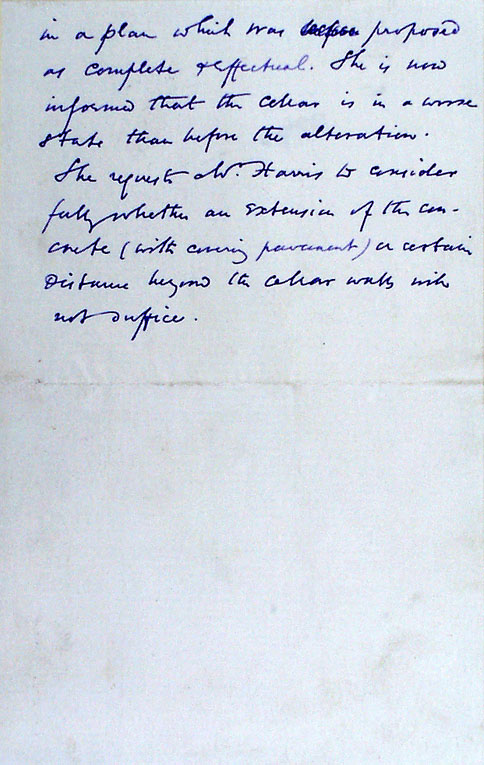 in a plan which was proposed
as complete & effectual. She is now
informed that the cellar is in a worse
state than before the alteration.
She requests Mr. Harris to consider
fully whether an extension of the con-
crete (with covering pavement) a certain
distance beyond the cellar walls will
not suffice.